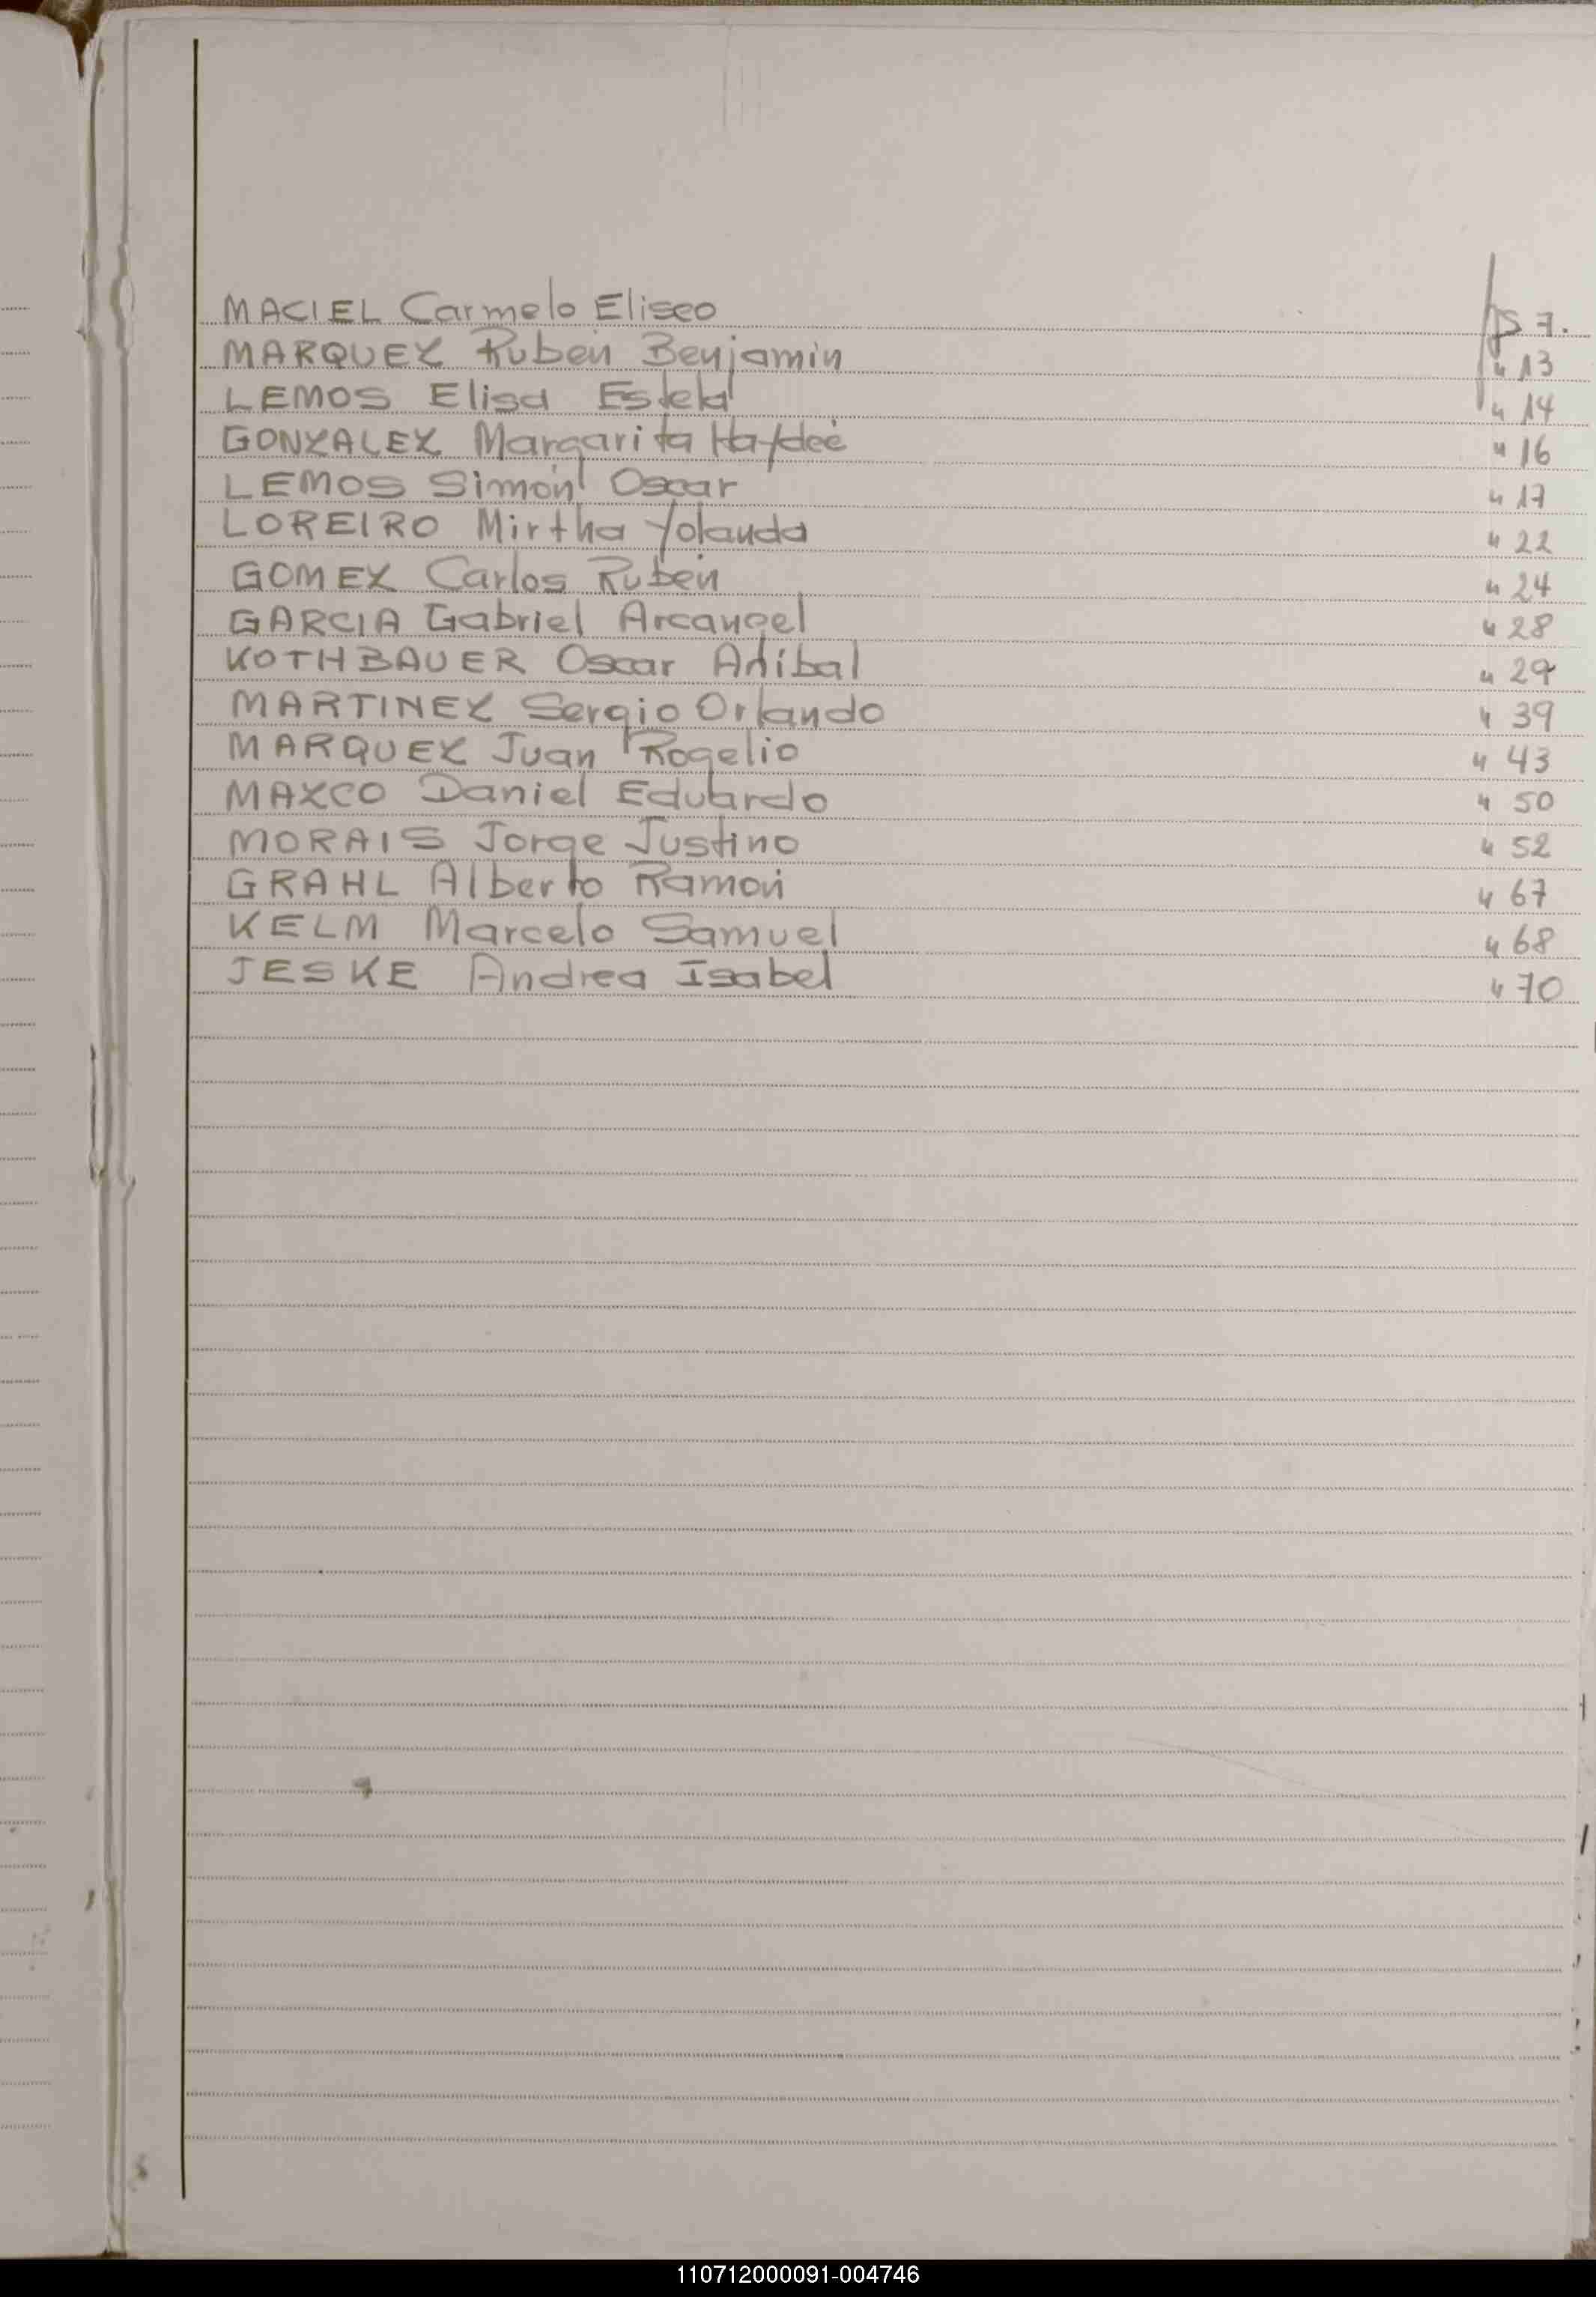 MACIEL Carmelo Eliseo fs 7.
MARQUEZ Rubén Benjamín " 13
LEMOS Elisa Estela " 14
GONZALEZ Margarita Haydeé " 16
LEMOS Simón Oscar " 17
LOREIRO Mirtha Yolanda " 22
GOMEZ Carlos Rubén " 24
GARCIA Gabriel Arcangel " 28
KOTHBAUER Oscar Aníbal " 29
MARTINEZ Sergio Orlando " 39
MARQUEZ Juan Rogelio " 43
MAZCO Daniel Eduardo " 50
MORAIS Jorge Justino " 52
GRAHL Alberto Ramón " 67
KELM Marcelo Samuel " 68
JESKE Andrea Isabel " 70
110712000091-004746